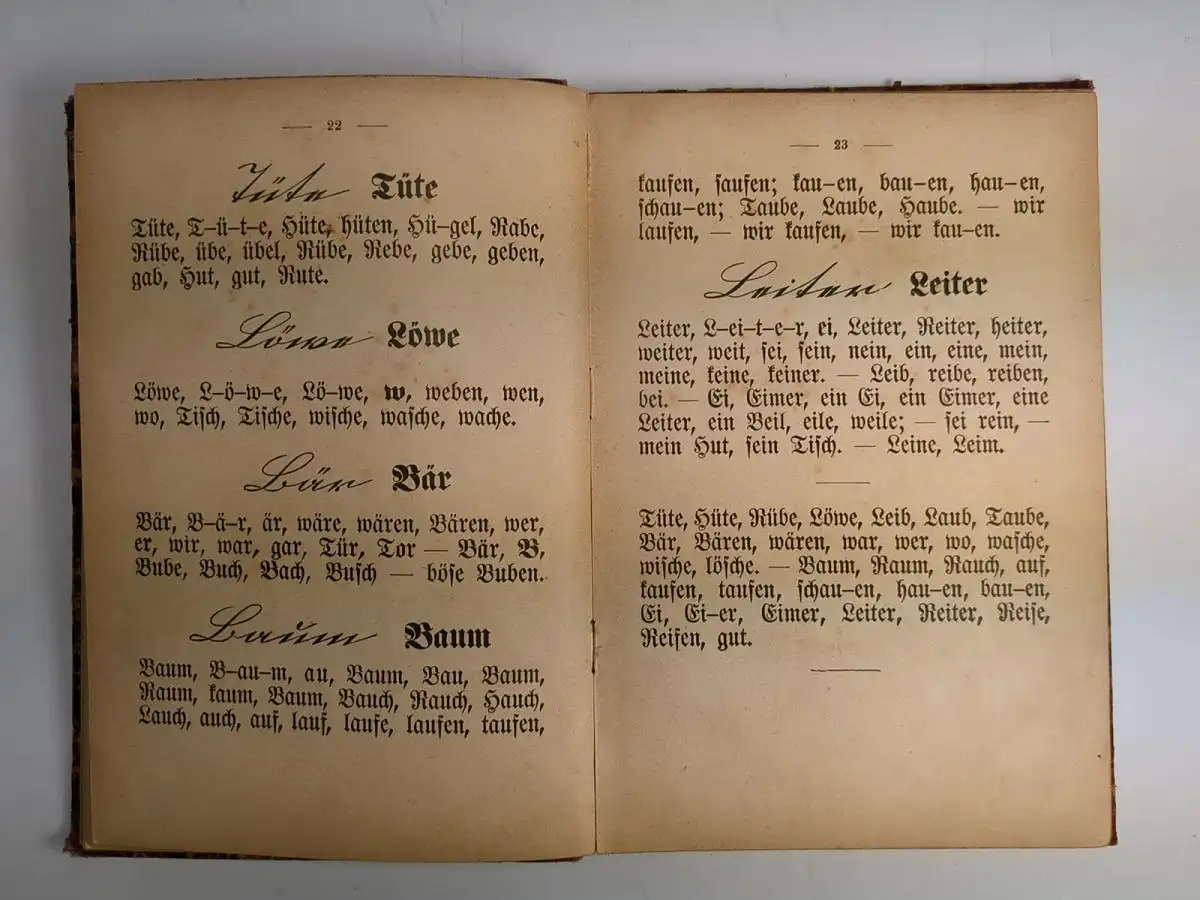 — 22 —
Tüte Tüte
Tüte, T-ü-t-e, Hüte, hüten, Hü-gel, Rabe,
Rübe, übe, übel, Rübe, Rebe, gebe, geben,
gab, Hut, gut, Rute.
Löwe Löwe
Löwe, L-ö-w-e, Lö-we, w, weben, wen,
wo, Tisch, Tische, wische, wasche, wache.
Bär Bär
Bär, B-ä-r, är, wäre, wären, Bären, wer,
er, wir, war, gar, Tür, Tor — Bär, B,
Bube, Buch, Bach, Busch — böse Buben.
Baum Baum
Baum, B-au-m, au, Baum, Bau, Baum,
Raum, kaum, Baum, Bauch, Rauch, Hauch,
Lauch, auch, auf, lauf, laufe, laufen, taufen,
— 23 —
kaufen, saufen; kau-en, bau-en, hau-en,
schau-en; Taube, Laube, Haube. — wir
laufen, — wir kaufen, — wir kau-en.
Leiter Leiter
Leiter, L-ei-t-e-r, ei, Leiter, Reiter, heiter,
weiter, weit, sei, sein, nein, ein, eine, mein,
meine, keine, keiner. — Leib, reibe, reiben,
bei. — Ei, Eimer, ein Ei, ein Eimer, eine
Leiter, ein Beil, eile, weile; — sei rein, —
mein Hut, sein Tisch. — Leine, Leim.
Tüte, Hüte, Rübe, Löwe, Leib, Laub, Taube,
Bär, Bären, wären, war, wer, wo, wasche,
wische, lösche. — Baum, Raum, Rauch, auf,
kaufen, taufen, schau-en, hau-en, bau-en,
Ei, Ei-er, Eimer, Leiter, Reiter, Reise,
Reifen, gut.